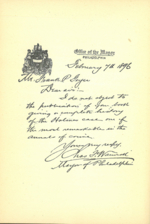 Office of the Mayor
PHILADELPHIA
February 7th 1896
Mr Frank P. Geyer
Dear sir—
I do not object to
the publication of your book
giving a complete history
of the Holmes case, one of
the most remarkable in the
annals of crime.
Yours very truly,
Chas. F. Warwick
Mayor of Philadelphia